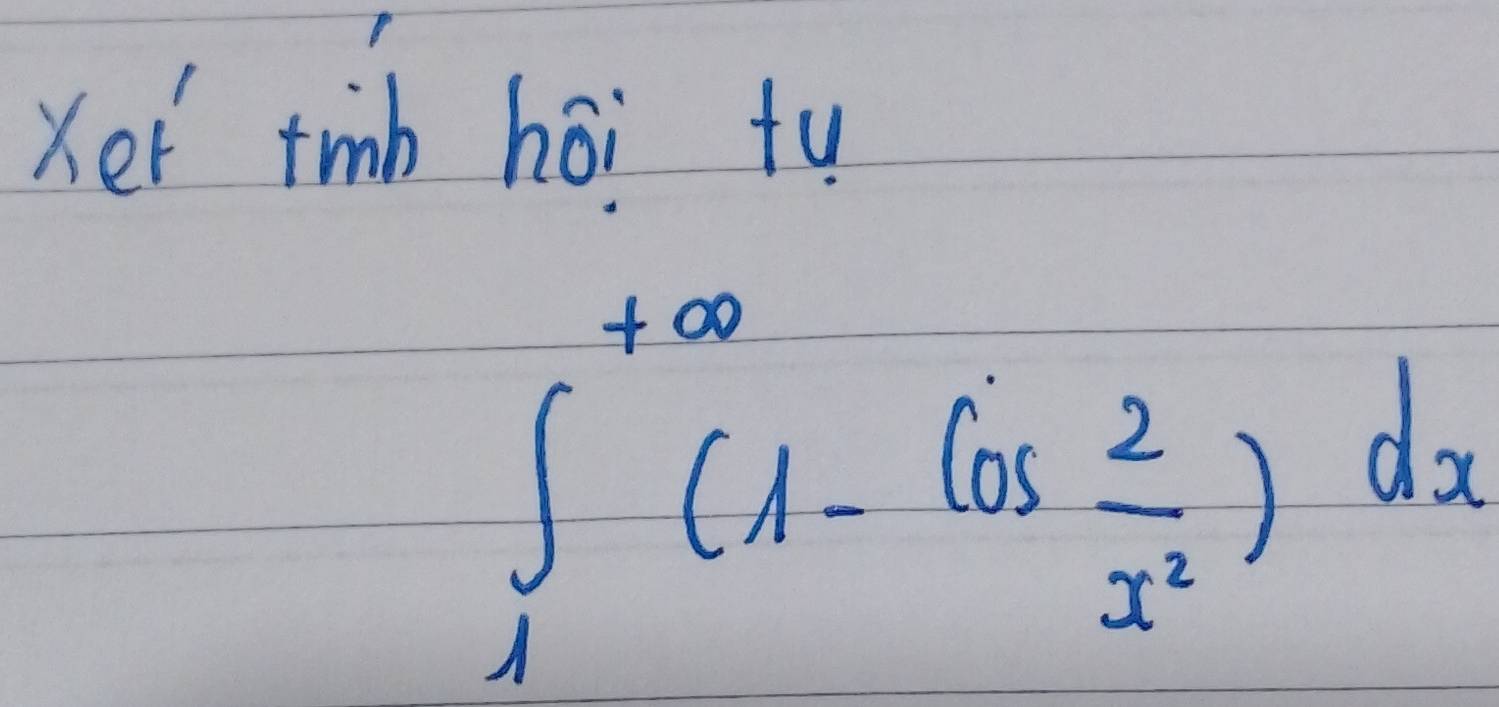 Xét tính hội tụ
+∞
∫ (1 - Cos 2/x²) dx
1